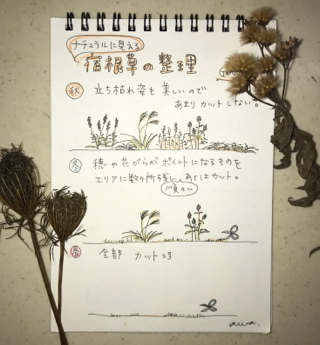 ナチュラルに見える
宿根草の整理
秋 立ち枯れ姿も美しいので
あまりカットしない。
冬 穂や花がらがポイントになるものを
エリアに数ヶ所残し、あとはカット。
春 全部カットする